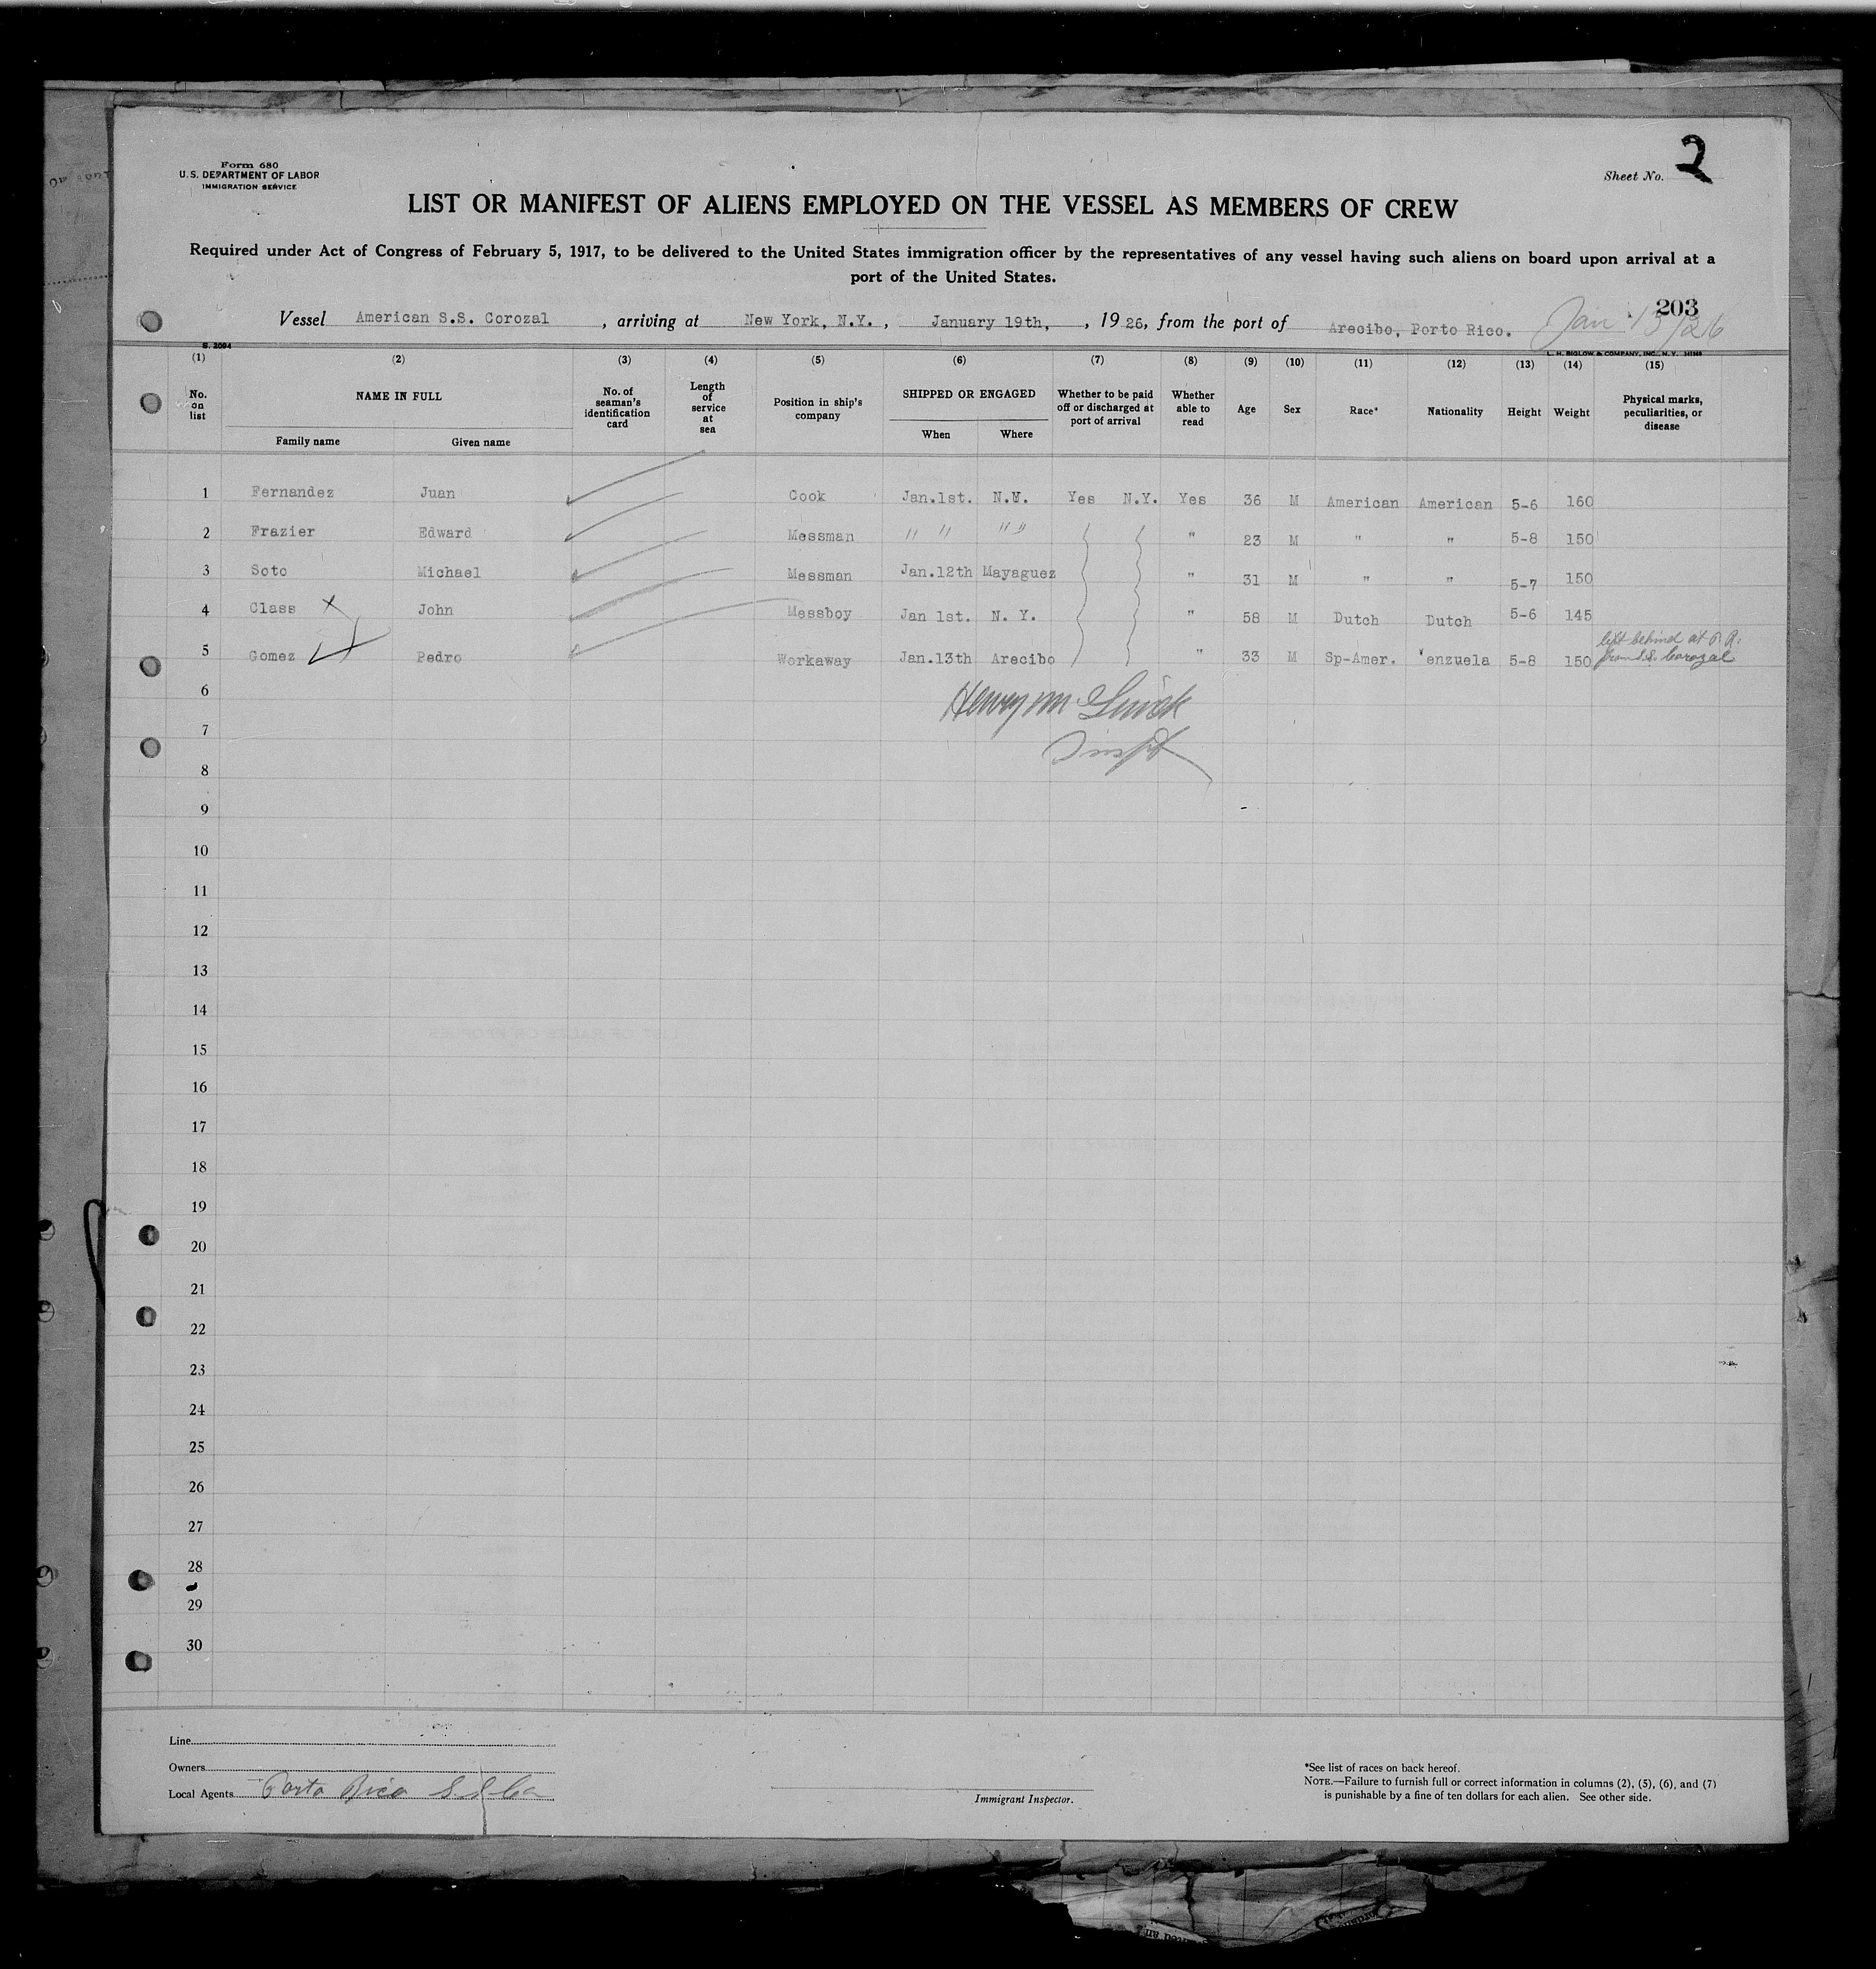 Form 680
U. S. DEPARTMENT OF LABOR
IMMIGRATION SERVICE
Sheet No. 2
LIST OR MANIFEST OF ALIENS EMPLOYED ON THE VESSEL AS MEMBERS OF CREW
Required under Act of Congress of February 5, 1917, to be delivered to the United States immigration officer by the representatives of any vessel having such aliens on board upon arrival at a
port of the United States.
203
Vessel American S.S. Corozal , arriving at New York, N.Y. , January 19th, , 1926, from the port of Arecibo, Porto Rico. Jan 13/26
S. 2094
L. H. BIGLOW & COMPANY, INC., N. Y.
(1) (2) (3) (4) (5) (6) (7) (8) (9) (10) (11) (12) (13) (14) (15)
No. on list NAME IN FULL Family name Given name No. of seaman's identification card Length of service at sea Position in ship's company SHIPPED OR ENGAGED When Where Whether to be paid off or discharged at port of arrival Whether able to read Age Sex Race* Nationality Height Weight Physical marks, peculiarities, or disease
1 Fernandez Juan Cook Jan.1st. N.Y. Yes N.Y. Yes 36 M American American 5-6 160
2 Frazier Edward Messman " " " " " 23 M " " 5-8 150
3 Soto Michael Messman Jan.12th Mayaguez " 31 M " " 5-7 150
4 Class x John Messboy Jan 1st. N. Y. " 58 M Dutch Dutch 5-6 145
5 Gomez Pedro Workaway Jan.13th Arecibo " 33 M Sp-Amer. Venzuela 5-8 150 left behind at P.R. from S.S. Corozal
6
Henry M
7
Inspt
8
9
10
11
12
13
14
15
16
17
18
19
20
21
22
23
24
25
26
27
28
29
30
Line
Owners
Local Agents Porto Rico S.S. Co
Immigrant Inspector.
*See list of races on back hereof.
NOTE.—Failure to furnish full or correct information in columns (2), (5), (6), and (7)
is punishable by a fine of ten dollars for each alien. See other side.